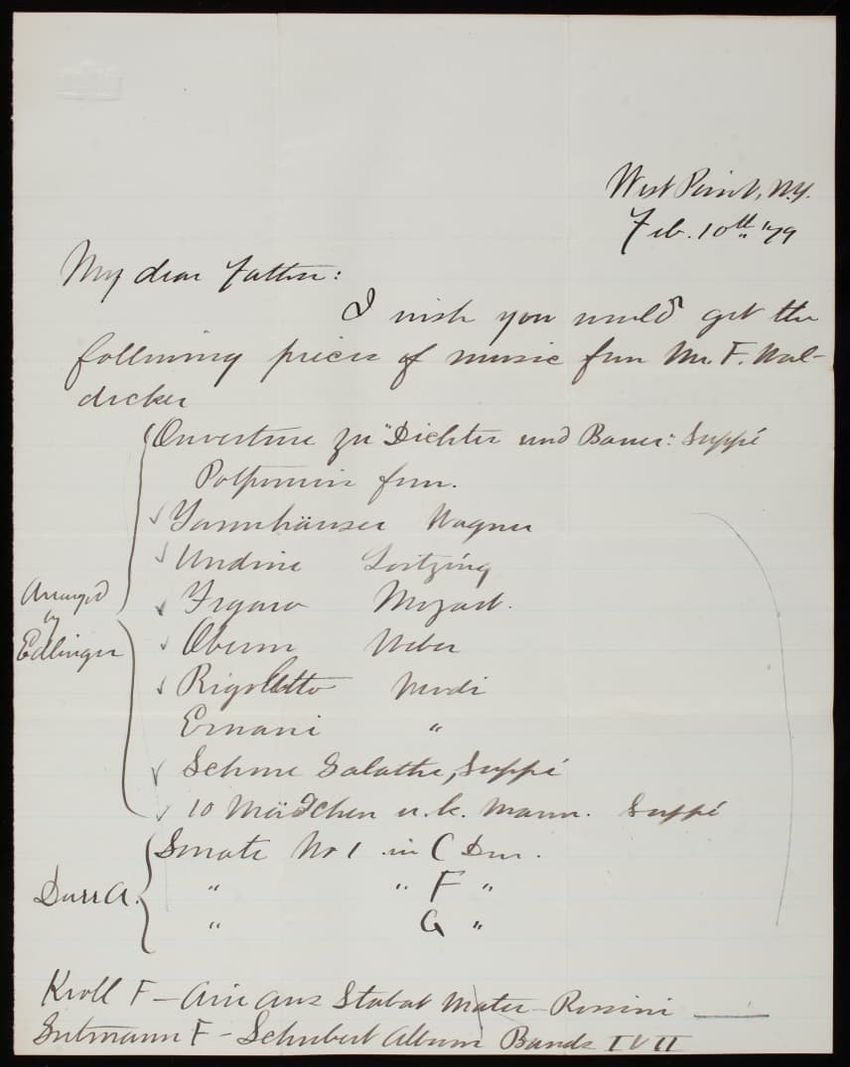 West Point, N.Y.
Feb. 10th "79
My dear Father:
I wish you would get the
following pieces of music from Mr. F. Wal-
decker
Ouverture zu "Dichter und Bauer": Suppé
Potpourris from.
✓ Tannhäuser Wagner
✓ Undine Lortzing
✓ Figaro Mozart.
✓ Oberon Weber
✓ Rigoletto Verdi
Ernani "
✓ Schöne Galathe, Suppé
✓ 10 Mädchen u. k. Mann. Suppé
Arranged
by
Edlinger
Sonate No 1 in C Dur.
" " F "
" G "
Durr A.
Kroll F – Arie aus Stabat Mater – Rossini
Gutmann F – Schubert Album Bands I & II